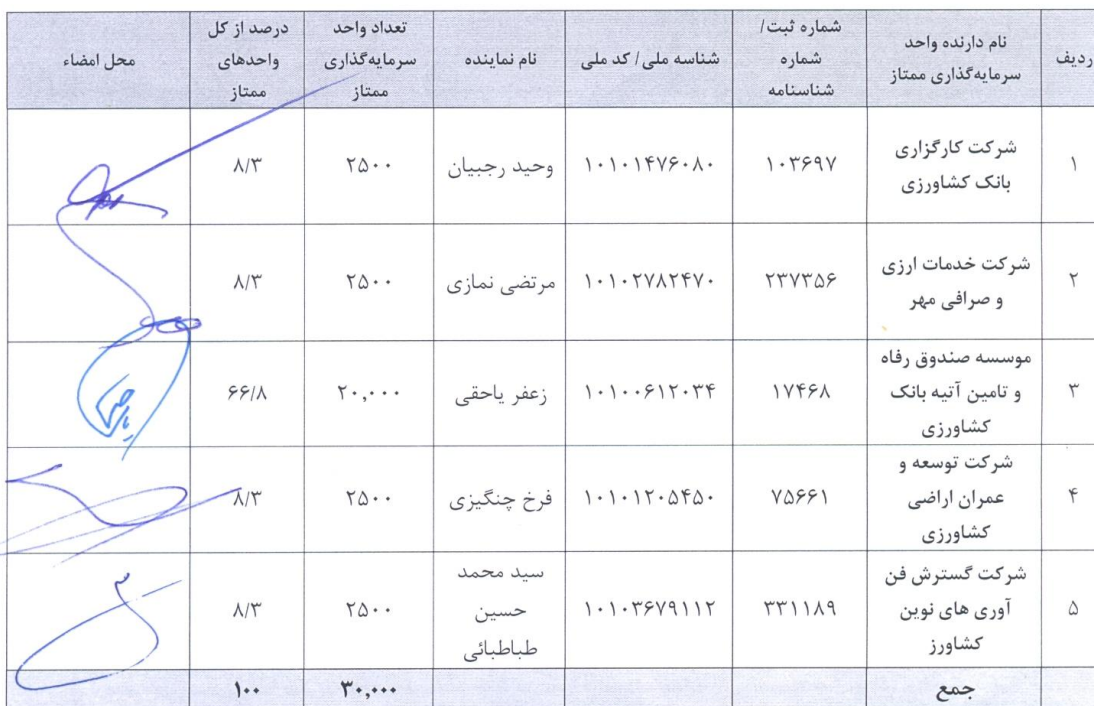 ردیف
نام دارنده واحد
سرمایه‌گذاری ممتاز
شماره ثبت/
شماره
شناسنامه
شناسه ملی / کد ملی
نام نماینده
تعداد واحد
سرمایه‌گذاری
ممتاز
درصد از کل
واحدهای
ممتاز
محل امضاء
۱
شرکت کارگزاری
بانک کشاورزی
۱۰۳۶۹۷
۱۰۱۰۱۴۷۶۰۸۰
وحید رجبیان
۲۵۰۰
۸/۳
۲
شرکت خدمات ارزی
و صرافی مهر
۲۳۷۳۵۶
۱۰۱۰۲۷۸۲۴۷۰
مرتضی نمازی
۲۵۰۰
۸/۳
۳
موسسه صندوق رفاه
و تامین آتیه بانک
کشاورزی
۱۷۴۶۸
۱۰۱۰۰۶۱۲۰۳۴
زعفر یاحقی
۲۰,۰۰۰
۶۶/۸
۴
شرکت توسعه و
عمران اراضی
کشاورزی
۷۵۶۶۱
۱۰۱۰۱۲۰۵۴۵۰
فرخ چنگیزی
۲۵۰۰
۸/۳
۵
شرکت گسترش فن
آوری های نوین
کشاورز
۳۳۱۱۸۹
۱۰۱۰۳۶۷۹۱۱۲
سید محمد
حسین
طباطبائی
۲۵۰۰
۸/۳
جمع
۳۰,۰۰۰
۱۰۰